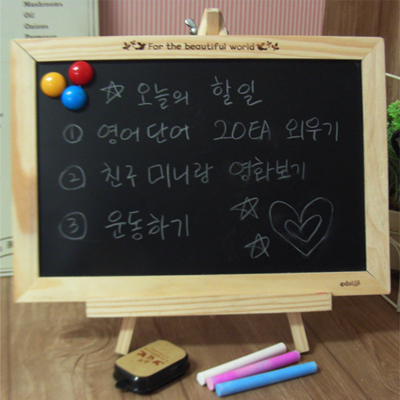 Mushrooms
Oil
Onions
For the beautiful world
오늘의 할일
① 영어단어 20EA 외우기
② 친구 미니랑 영화보기
③ 운동하기